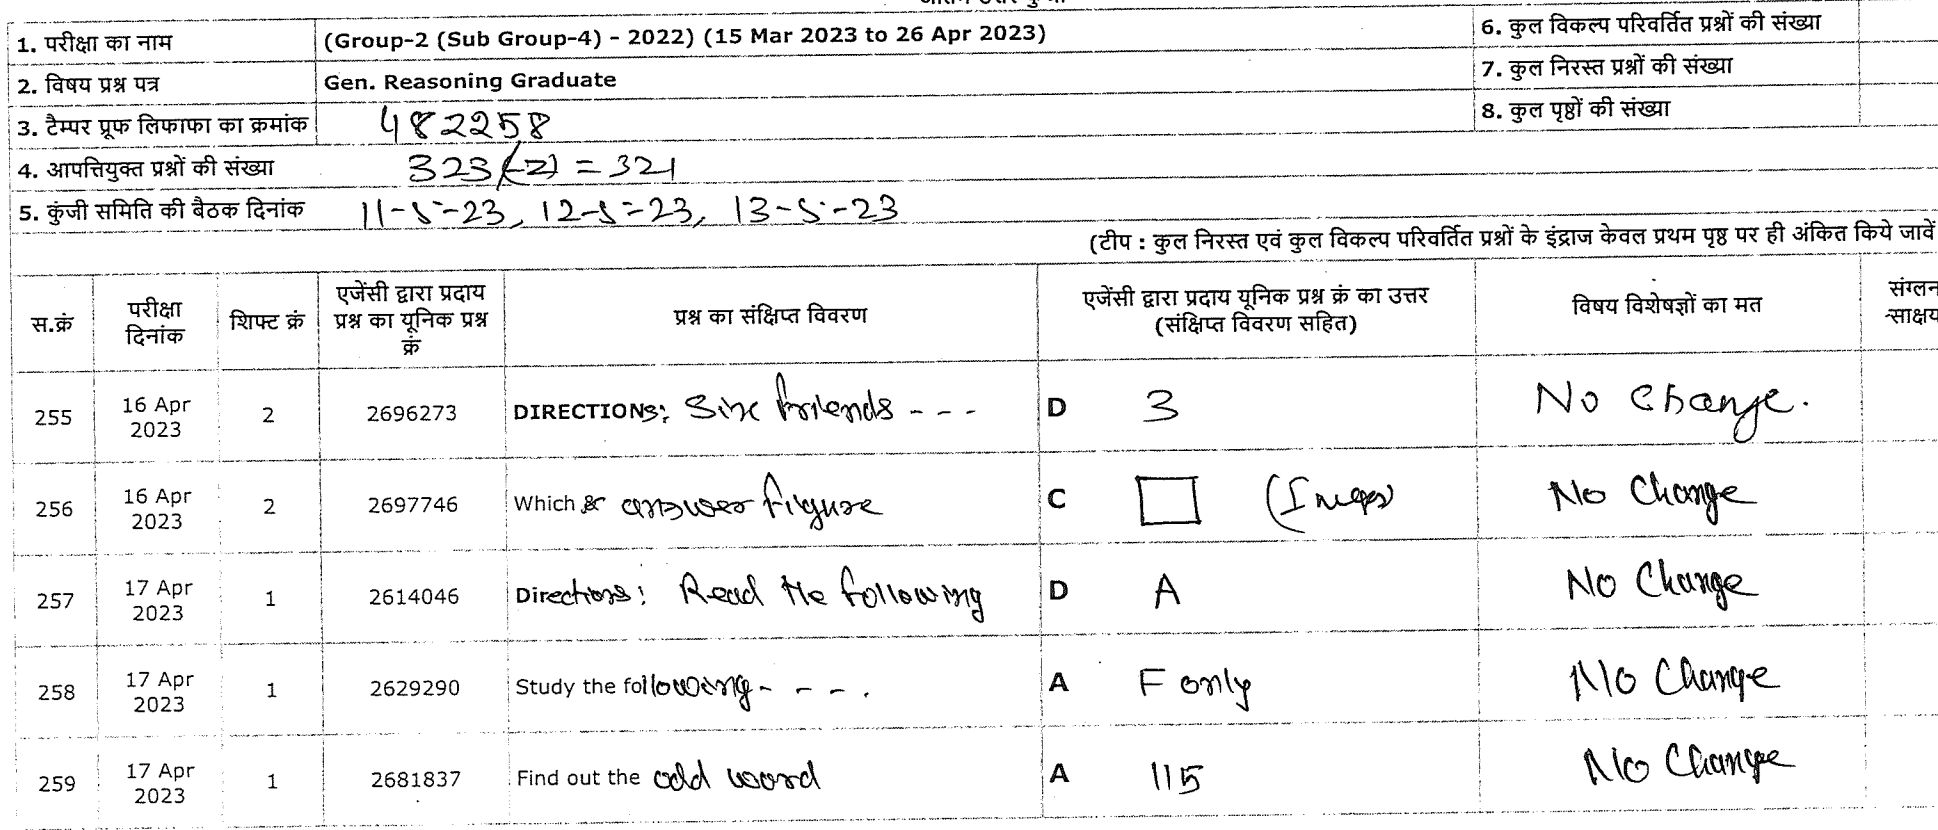 1. परीक्षा का नाम (Group-2 (Sub Group-4) - 2022) (15 Mar 2023 to 26 Apr 2023) 6. कुल विकल्प परिवर्तित प्रश्नों की संख्या
2. विषय प्रश्न पत्र Gen. Reasoning Graduate 7. कुल निरस्त प्रश्नों की संख्या
3. टैम्पर प्रूफ लिफाफा का क्रमांक 482258 8. कुल पृष्ठों की संख्या
4. आपत्तियुक्त प्रश्नों की संख्या 323(-2) = 321
5. कुंजी समिति की बैठक दिनांक 11-5-23, 12-5-23, 13-5-23
(टीप : कुल निरस्त एवं कुल विकल्प परिवर्तित प्रश्नों के इंद्राज केवल प्रथम पृष्ठ पर ही अंकित किये जावें
स.क्रं
परीक्षा
दिनांक
शिफ्ट क्रं
एजेंसी द्वारा प्रदाय
प्रश्न का यूनिक प्रश्न
क्रं
प्रश्न का संक्षिप्त विवरण
एजेंसी द्वारा प्रदाय यूनिक प्रश्न क्रं का उत्तर
(संक्षिप्त विवरण सहित)
विषय विशेषज्ञों का मत
संग्लन
साक्षय
255 16 Apr 2 2696273 DIRECTIONS: Six friends - - - D 3 No Change.
2023
256 16 Apr 2 2697746 Which answer figure C No Change
2023
257 17 Apr 1 2614046 Directions: Read the following D A No Change
2023
258 17 Apr 1 2629290 Study the following - - - . A F only No Change
2023
259 17 Apr 1 2681837 Find out the odd word A 115 No Change
2023